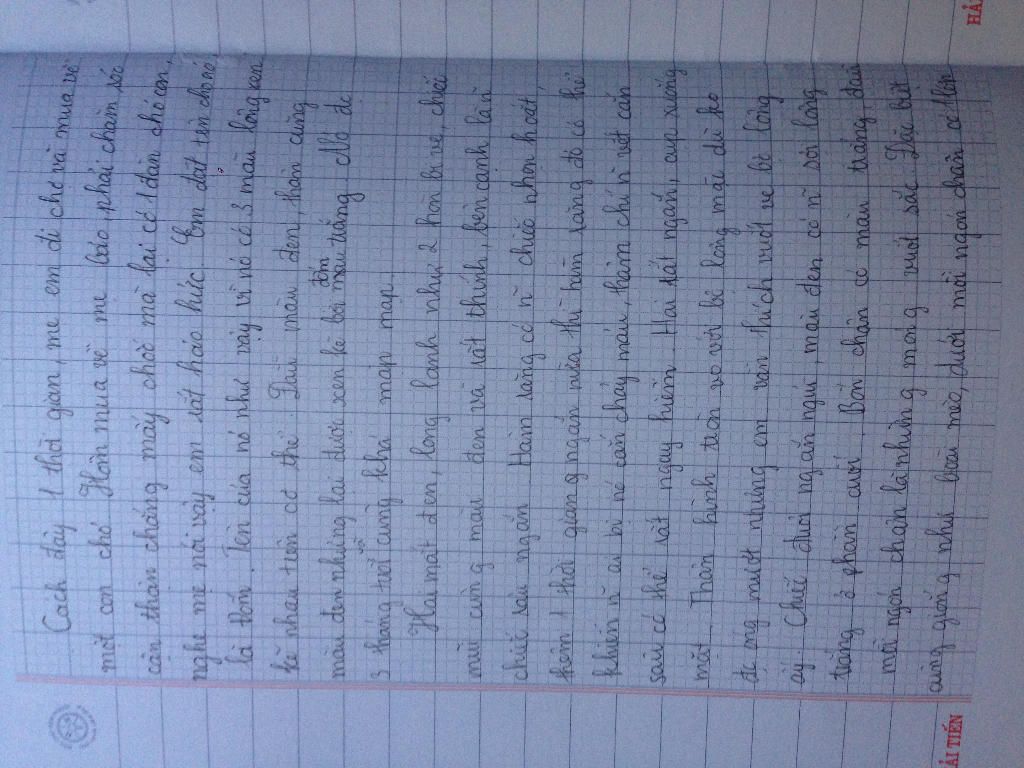 Cách đây 1 thời gian, mẹ em đi chợ và mua về
một con chó. Hôm mua về mẹ bảo phải chăm sóc
cẩn thận chẳng mấy chốc mà lại có 1 đàn chó con,
nghe mẹ nói vậy em rất háo hức. Em đặt tên cho nó
là Đốm. Tên của nó như vậy vì nó có 3 màu lông xen
kẽ nhau trên cơ thể. Đuôi màu đen, thân cũng
màu đen nhưng lại được xen kẽ bởi đốm màu trắng. Nó đc
3 tháng tuổi và cũng khá mập mạp.
Hai mắt đen, long lanh như 2 hòn bi ve, chiếc
mũi cũng màu đen và rất thính, bên cạnh là n~
chiếc râu ngắn. Hàm răng có n~ chiếc nhọn hoắt,
thêm 1 thời gian ngắn nữa thì hàm răng đó có thể
khiến n~ ai bị nó cắn chảy máu, thậm chí n~ vết cắn
sâu có thể rất nguy hiểm. Hai tai ngắn, cụp xuống
mặt. Thân hình tròn vo với bộ lông mặc dù ko
đc óng mượt nhưng em vẫn thích vuốt ve bộ lông
ấy. Chiếc đuôi ngắn ngủi, màu đen có n~ sợi lông
trắng ở phần cuối. Bốn chân có màu trắng, dưới
mỗi ngón chân là những móng vuốt sắc. Đặc biệt
cũng giống như loài mèo, dưới mỗi ngón chân có lớp
HẢI
ẢI TIẾN